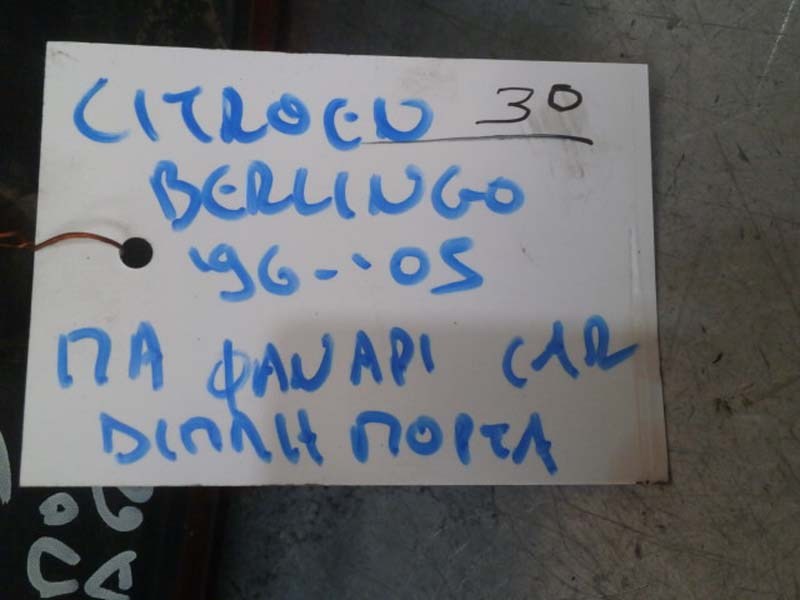 CITROEN 30
BERLINGO
'96-'05
ΠΑ ΦΑΝΑΡΙ
ΔΙΠΛΗ ΠΟΡΤΑ